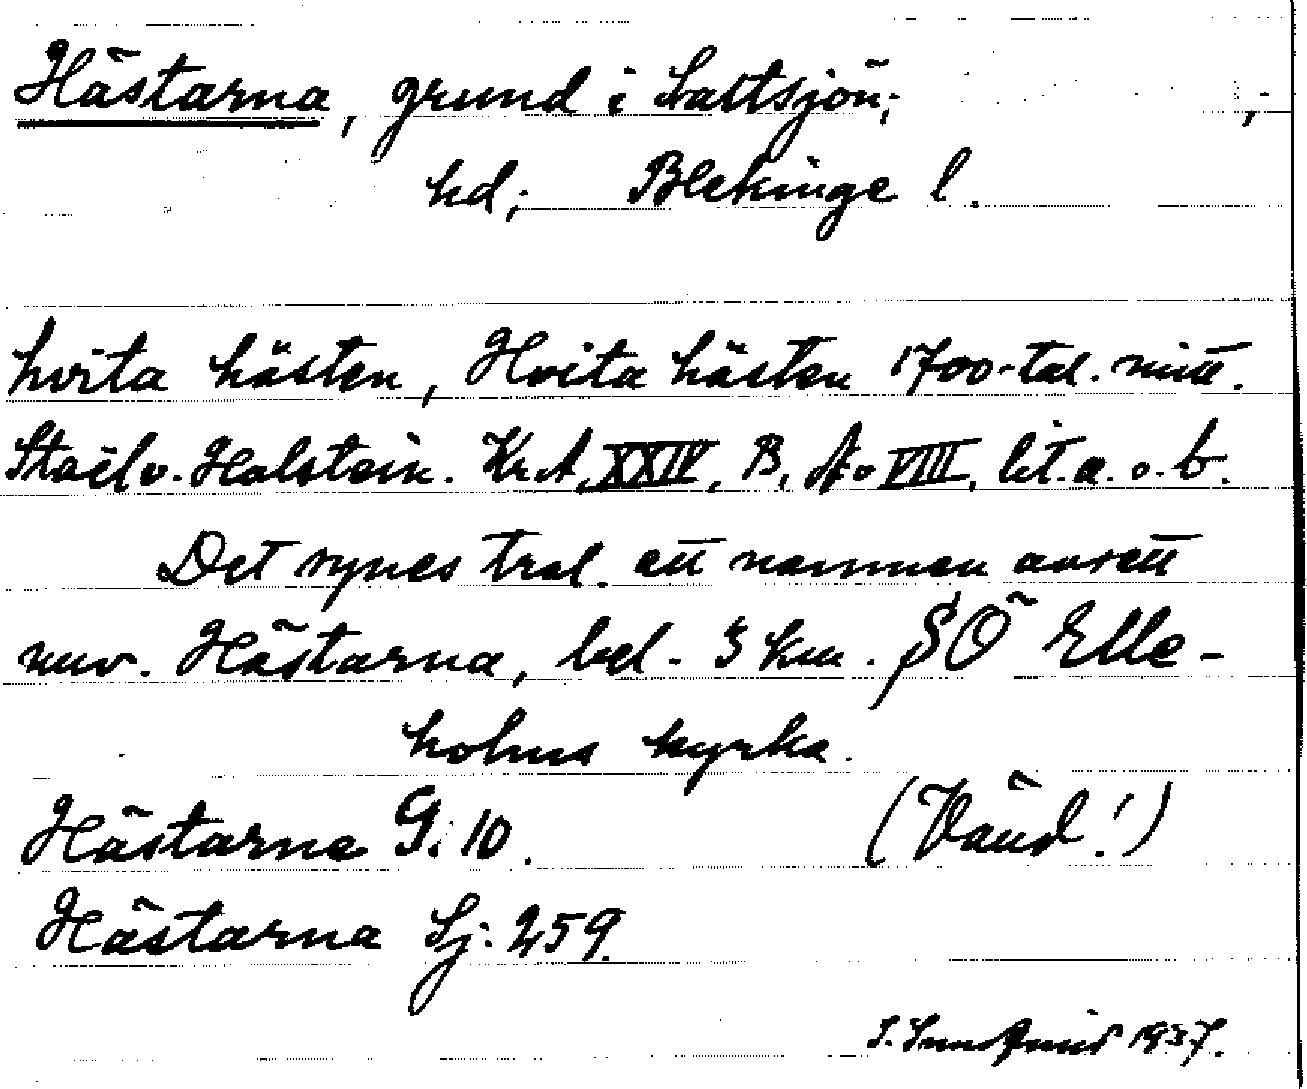 Hästarna, grund i Saltsjön; ,-
hd; Blekinge l.
hvita hästen, Hvita hästen 1700-tal. mitt.
Staël v. Holstein. Kr.A. XXIV, B, No VIII, lit. a. o. b.
Det synes trol. att namnen avsett
nuv. Hästarna, bel. 3 km. SÖ Elle-
holms kyrka.
Hästarna G: 10. (Vänd!)
Hästarna Sj: 259.
1937.